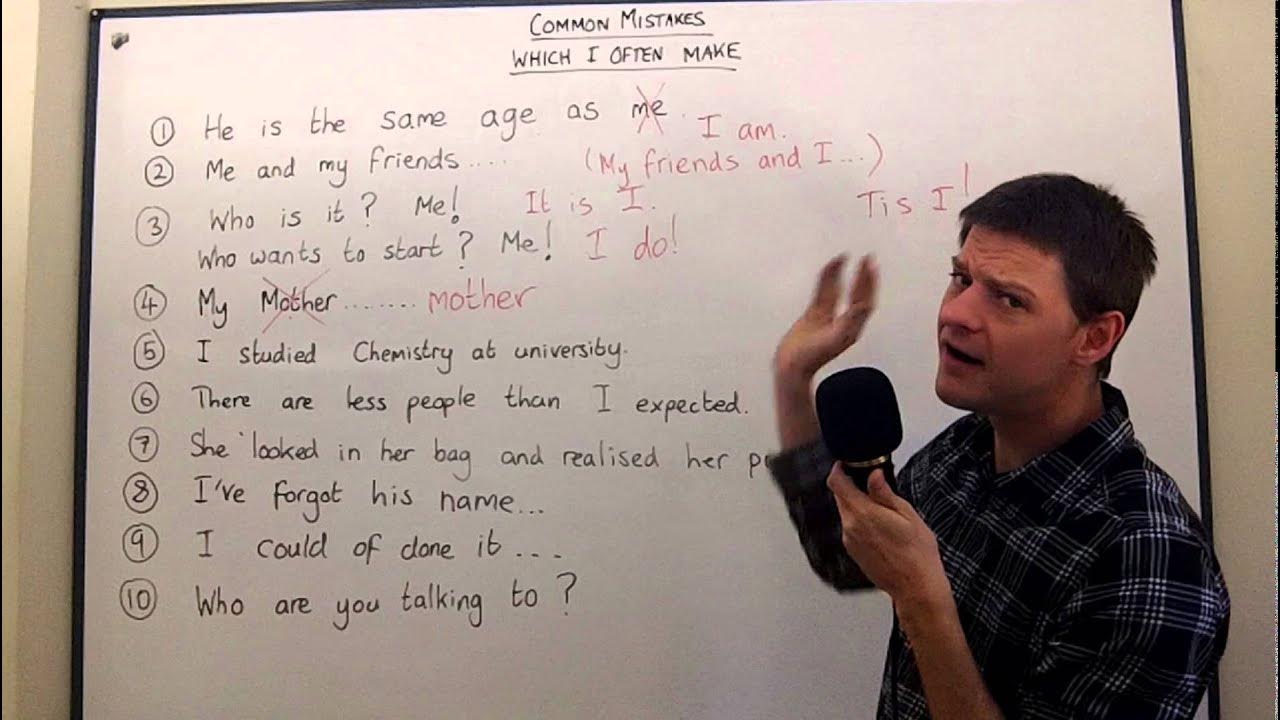 COMMON MISTAKES
WHICH I OFTEN MAKE
① He is the same age as me. I am.
② Me and my friends.... (My friends and I...)
③ Who is it? Me! It is I. Tis I!
Who wants to start? Me! I do!
④ My Mother........ mother
⑤ I studied Chemistry at university.
⑥ There are less people than I expected.
⑦ She looked in her bag and realised her
⑧ I've forgot his name...
⑨ I could of done it ...
⑩ Who are you talking to?